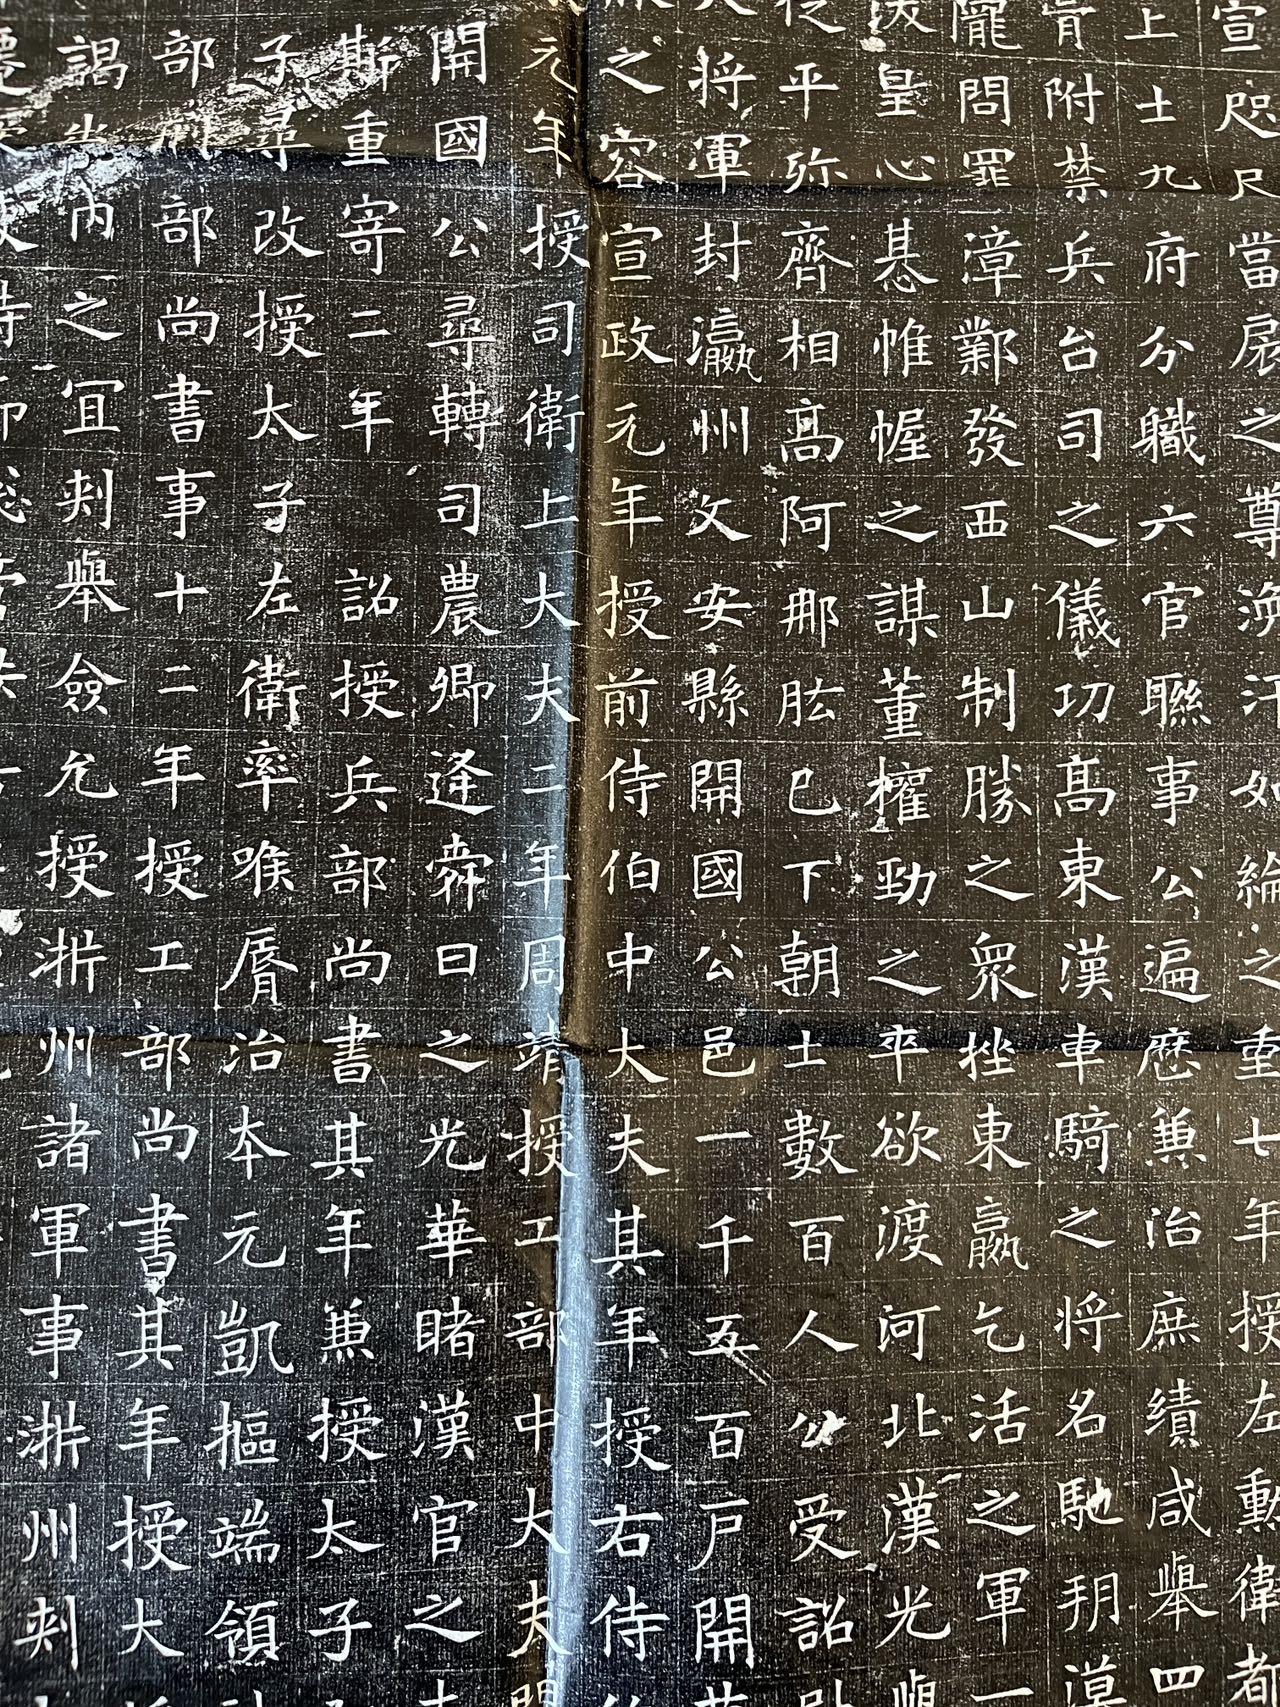 宣咫尺當扆之尊渙汗如綸之重七年授左勳衛都
上士九府分職六官聯事公遍歷兼治庶績咸舉四
附禁兵台司之儀功高東漢車騎之將名馳朔漠
罷問罪漳鄴發西山制勝之眾挫東嬴乞活之軍一
皇心惎帷幄之謀董權勁之卒欲渡河北漢光
從平弥齊相高阿那肱已下朝士數百人公受詔
大將軍封瀛州文安縣開國公邑一千五百戶開
之容宣政元年授前侍伯中大夫其年授右侍
元年授司衛上大夫二年周靖授工部中大夫
開國公尋轉司農卿逢舜日之光華睹漢官之
斯重寄二年詔授兵部尚書其年兼授太子
子尋改授太子左衛率喉脣治本元凱樞端領
部尚書事十二年授工部尚書其年授大
謁內之宜剌舉僉允授淅州諸軍事淅州刺